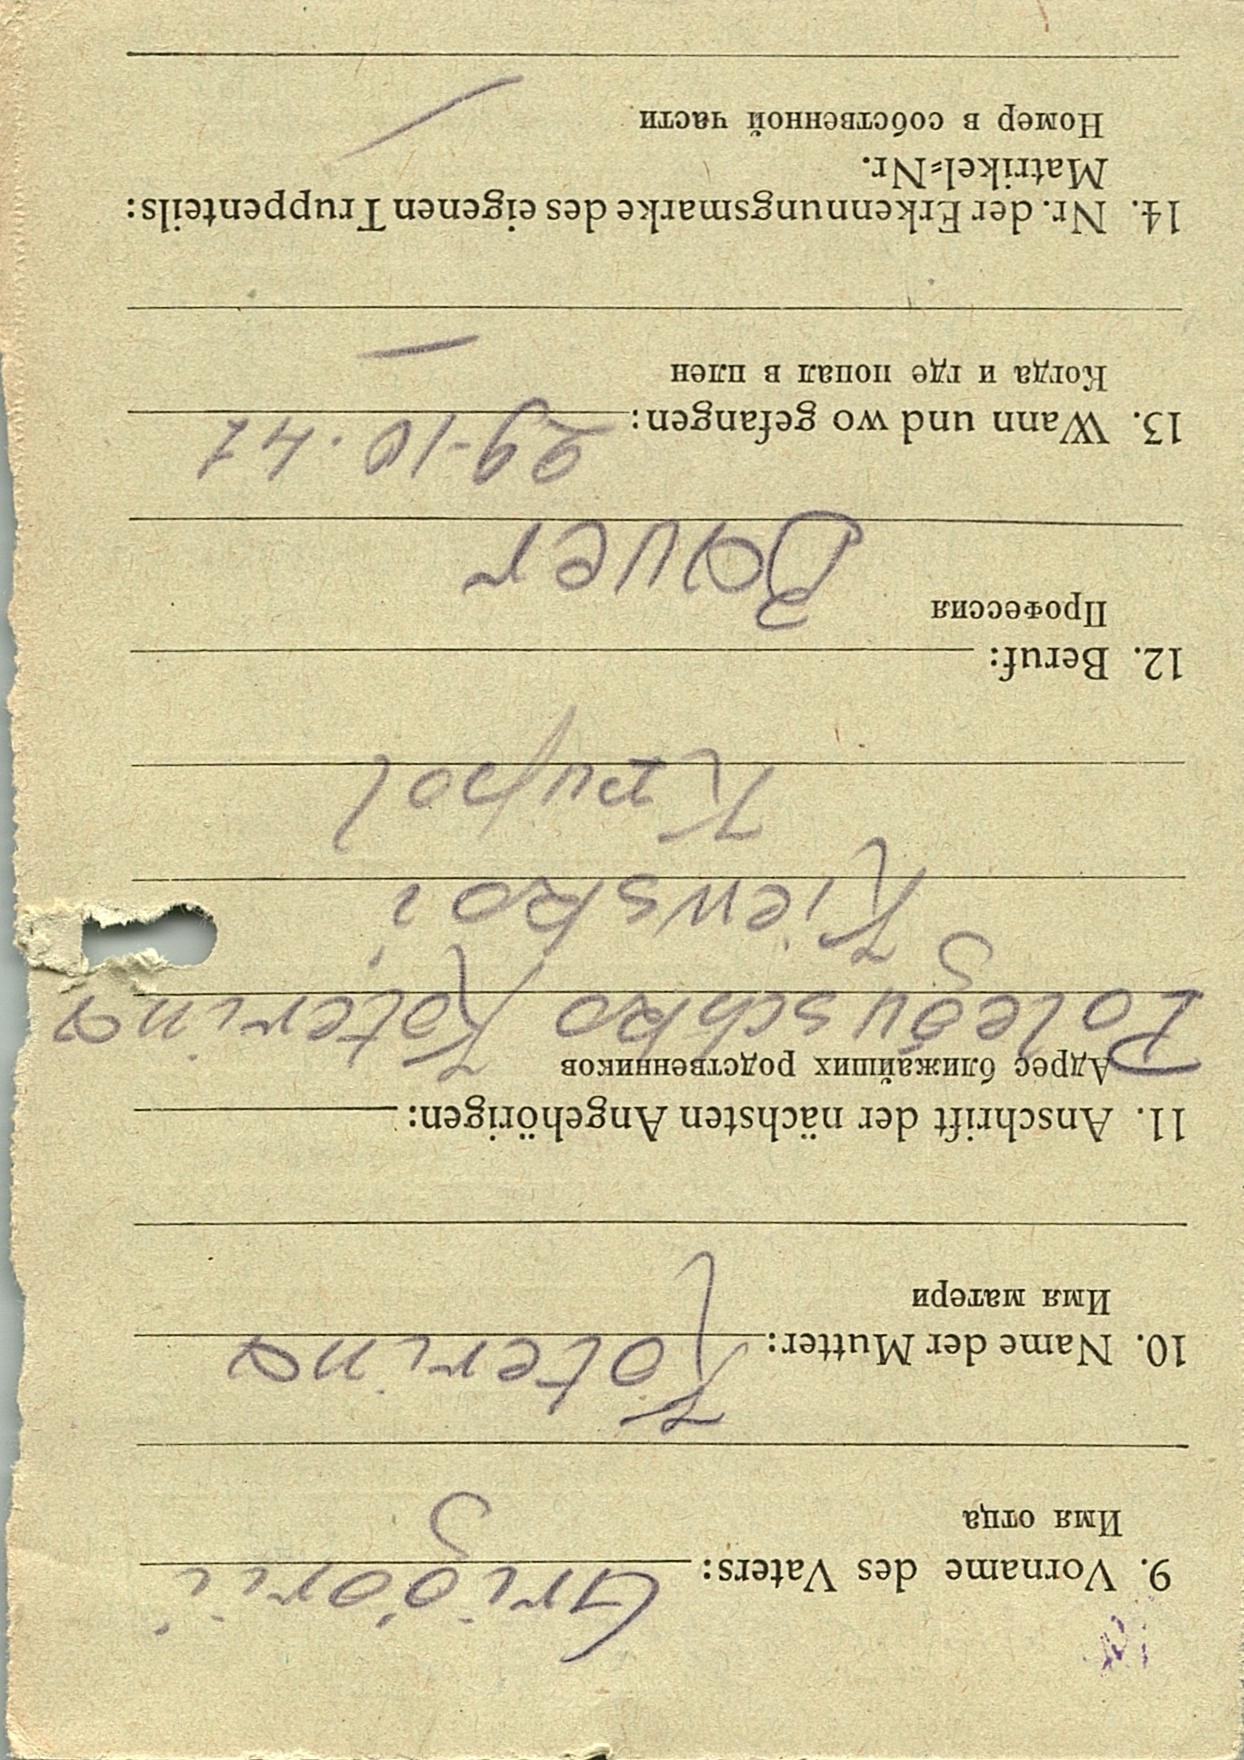 9. Vorname des Vaters: Grigorii
Имя отца
10. Name der Mutter: Katerina
Имя матери
11. Anschrift der nächsten Angehörigen:
Адрес ближайших родственников
Katerina
Kiewskoi
12. Beruf:
Профессия
Bauer
13. Wann und wo gefangen: 29-10.41
Когда и где попал в плен —
14. Nr. der Erkennungsmarke des eigenen Truppenteils:
Matrikel-Nr.
Номер в собственной части —